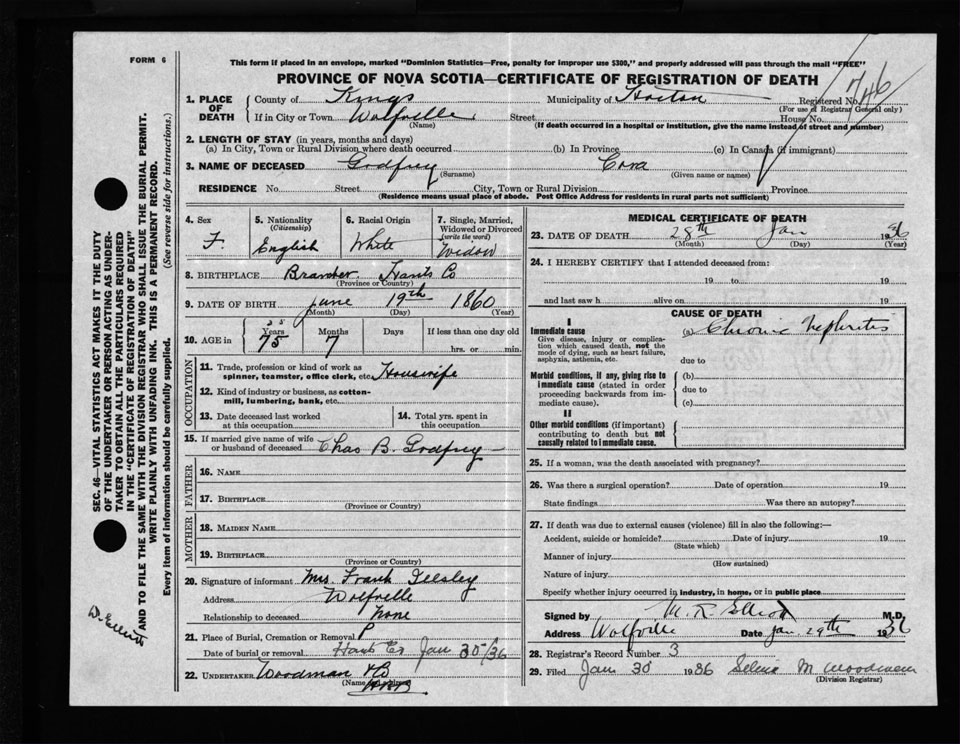 FORM 6
This form if placed in an envelope, marked "Dominion Statistics—Free, penalty for improper use $300," and properly addressed will pass through the mail "FREE"
PROVINCE OF NOVA SCOTIA—CERTIFICATE OF REGISTRATION OF DEATH
1. PLACE OF DEATH County of Kings Municipality of Horton Registered No. 746
(For use of Registrar General only)
If in City or Town Wolfville Street House No.
(Name) (If death occurred in a hospital or institution, give the name instead of street and number)
2. LENGTH OF STAY (in years, months and days)
(a) In City, Town or Rural Division where death occurred (b) In Province (c) In Canada (if immigrant)
3. NAME OF DECEASED Godfrey Cora
(Surname) (Given name or names)
RESIDENCE No. Street City, Town or Rural Division Province
(Residence means usual place of abode. Post Office Address for residents in rural parts not sufficient)
4. Sex 5. Nationality (Citizenship) 6. Racial Origin 7. Single, Married, Widowed or Divorced (write the word)
F. English White Widow
8. BIRTHPLACE Hants Co
(Province or Country)
9. DATE OF BIRTH June 19th 1860
(Month) (Day) (Year)
10. AGE in Years Months Days If less than one day old
75 7 hrs. or min.
OCCUPATION
11. Trade, profession or kind of work as spinner, teamster, office clerk, etc. Housewife
12. Kind of industry or business, as cotton-mill, lumbering, bank, etc.
13. Date deceased last worked at this occupation 14. Total yrs. spent in this occupation
15. If married give name of wife or husband of deceased Chas B. Godfrey
FATHER
16. NAME
17. BIRTHPLACE
(Province or Country)
MOTHER
18. MAIDEN NAME
19. BIRTHPLACE
(Province or Country)
20. Signature of informant Mrs. Frank
Address Wolfville
Relationship to deceased None
21. Place of Burial, Cremation or Removal
Date of burial or removal Hants Co Jan 30/36
22. UNDERTAKER Woodman & Co
(Name and address)
MEDICAL CERTIFICATE OF DEATH
23. DATE OF DEATH 28th Jan 1936
(Month) (Day) (Year)
24. I HEREBY CERTIFY that I attended deceased from:
19 to 19
and last saw h alive on 19
CAUSE OF DEATH
I
Immediate cause (a) Chronic Nephritis
Give disease, injury or complication which caused death, not the mode of dying, such as heart failure, asphyxia, asthenia, etc.
due to
Morbid conditions, if any, giving rise to immediate cause (stated in order proceeding backwards from immediate cause).
(b)
due to
(c)
II
Other morbid conditions (if important) contributing to death but not causally related to immediate cause.
25. If a woman, was the death associated with pregnancy?
26. Was there a surgical operation? Date of operation 19
State findings Was there an autopsy?
27. If death was due to external causes (violence) fill in also the following:—
Accident, suicide or homicide? Date of injury 19
(State which)
Manner of injury
(How sustained)
Nature of injury
Specify whether injury occurred in industry, in home, or in public place
Signed by M. R. Elliott M.D.
Address Wolfville Date Jan 29th 1936
28. Registrar's Record Number 3
29. Filed Jan 30 1936 Selena M Woodman
(Division Registrar)
SEC. 46—VITAL STATISTICS ACT MAKES IT THE DUTY
OF THE UNDERTAKER OR PERSON ACTING AS UNDER-
TAKER TO OBTAIN ALL THE PARTICULARS REQUIRED
IN THE "CERTIFICATE OF REGISTRATION OF DEATH"
AND TO FILE THE SAME WITH THE DIVISION REGISTRAR WHO SHALL ISSUE THE BURIAL PERMIT.
WRITE PLAINLY WITH UNFADING INK. THIS IS A PERMANENT RECORD.
Every item of information should be carefully supplied. (See reverse side for instructions.)
D. Elliott